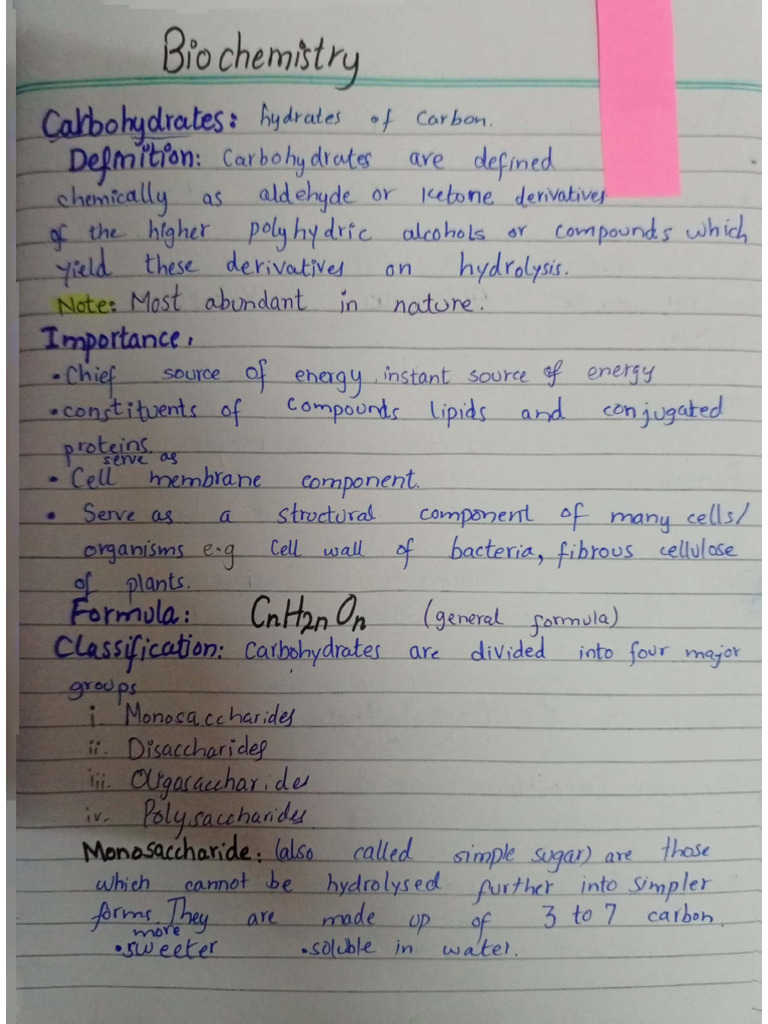 Biochemistry
Carbohydrates: hydrates of carbon.
Definition: Carbohydrates are defined
chemically as aldehyde or ketone derivatives
of the higher polyhydric alcohols or compounds which
yield these derivatives on hydrolysis.
Note: Most abundant in nature.
Importance.
• Chief source of energy, instant source of energy
• constituents of compounds lipids and conjugated
proteins.
serve as
• Cell membrane component.
• Serve as a structural component of many cells/
organisms e.g cell wall of bacteria, fibrous cellulose
of plants.
Formula: CnH2nOn (general formula)
Classification: Carbohydrates are divided into four major
groups
i. Monosaccharides
ii. Disaccharides
iii. Oligosaccharides
iv. Polysaccharides
Monosaccharide: (also called simple sugar) are those
which cannot be hydrolysed further into simpler
forms. They are made up of 3 to 7 carbon.
more
• sweeter • soluble in water.